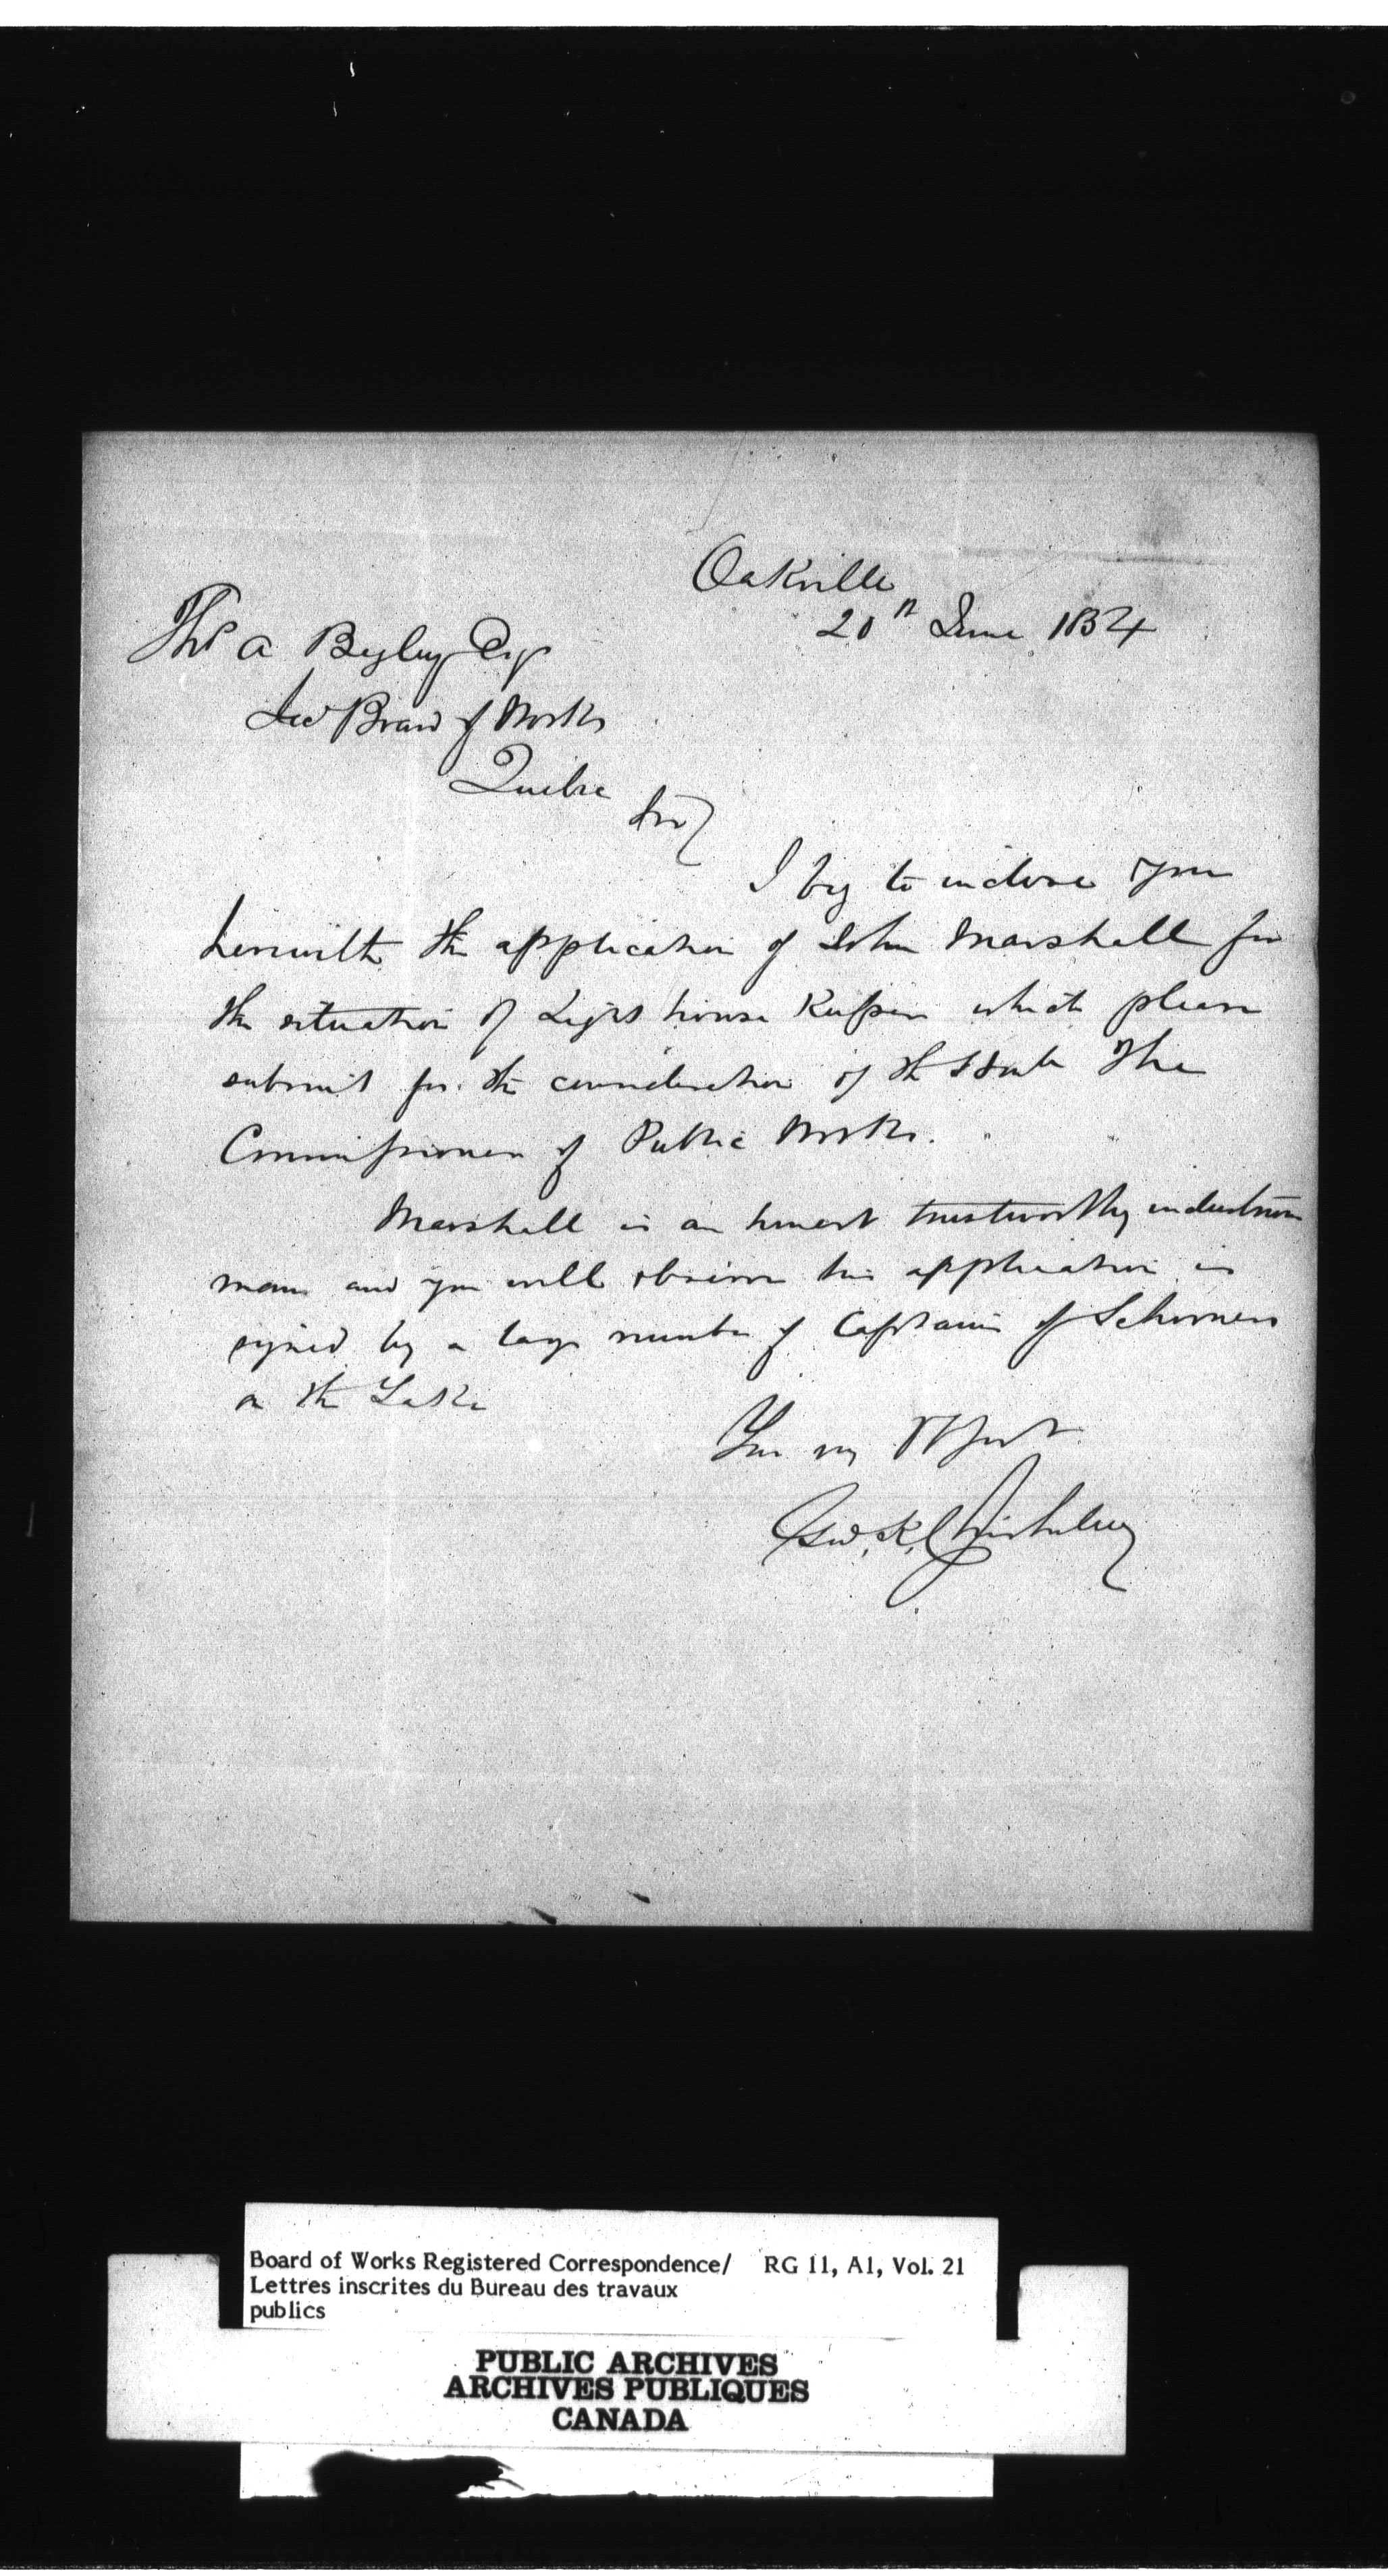 Oakville
20th June 1854
Thos A Begley Esq
Sec Board of Works
Quebec
Sir
I beg to inclose you
herewith the application of John Marshall for
the situation of Light house Keeper which please
submit for the consideration of the Honble The
Commissioner of Public Works.
Marshall is an honest trustworthy industrious
man and you will observe his application is
signed by a large number of Captains of Schooners
on the Lake
Geo. K. Chisholm
Board of Works Registered Correspondence/ RG 11, A1, Vol. 21
Lettres inscrites du Bureau des travaux
publics
PUBLIC ARCHIVES
ARCHIVES PUBLIQUES
CANADA